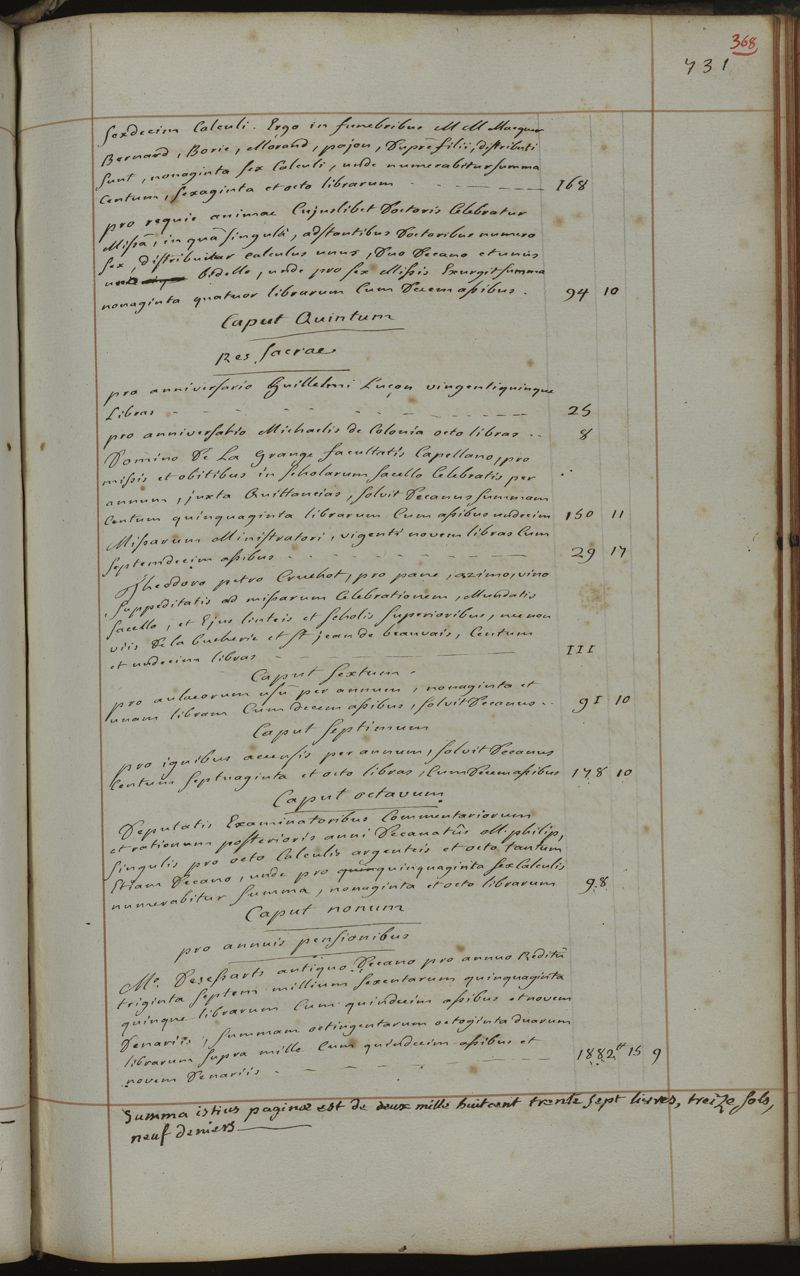 368
731
Sexdecim Calculi. Ergo in funebribus M M Macquer
Bernard, Borie, Morand, pajon, Dupré filii, distributi
sunt, nonaginta sex Calculi, unde numerabitur summa
Centum, sexaginta et octo librarum - - - - 168
pro requie animae Cujuslibet Doctoris Celebratur
Missa, in quâ singulis, adstantibus Doctoribus numero
sex, distribuitur calculus unus, Duo Decano et unus
Bidello, unde pro sex Missis Exurgit summa
nonaginta quatuor librarum Cum Decem assibus. 94 10
Caput Quintum
Res Sacrae
pro anniversario Guillelmi Luçon vingenti quinque
Libras - - - - - - 25
pro anniversario Michaelis de Colonia octo libras .. 8
Domino De La Grange facultatis Capellano, pro
missis et obitibus in scholarum sacello Celebratis per
annum, juxta Quittancias, solvit Decanus summam
Centum quinquaginta librarum Cum assibus undecim 150 11
Missarum Ministratori, vigenti novem libras Cum
septemdecim assibus - - - - - - 29 17
Theodoro petro Cruchot, pro pane, azimo, vino
suppeditatis ad missarum Celebrationem, Mundatis
sacello, et Ejus linteis et scholis superioribus, nec non
viis De la bucherie et st jean de beauvais, Centum
et undecim libras - - - - 111
Caput Sextum.
pro aulaeorum usu per annum, nonaginta et
unam libram Cum decem assibus, solvit Decanus .. 91 10
Caput Septimum
pro ignibus accensis per annum, solvit Decanus
Centum septuaginta et octo libras, Cum Decem assibus 178 10
Caput octavum.
Deputatis Examinatoribus Commentariorum
et rationum posterioris anni Decanatûs M. philip,
singulis pro octo Calculis argenteis et octo tantum
Etiam Decano, unde pro quin quinquaginta sex Calculis
numerabitur summa, nonaginta et octo librarum 98
Caput nonum
pro annuis pensionibus
Mo. Desessarts antiquo Decano pro annuo Reditu
triginta septem millium sexentarum quinquaginta
quinque librarum Cum quindecim assibus et novem
Denariis, summam octingentarum octoginta duarum
librarum supra mille Cum quindecim assibus et
novem Denariis - - - - - - 1882tt 15 9
Summa istius paginae est de deux mille huit cent trente sept livres, treize sols,
neuf deniers